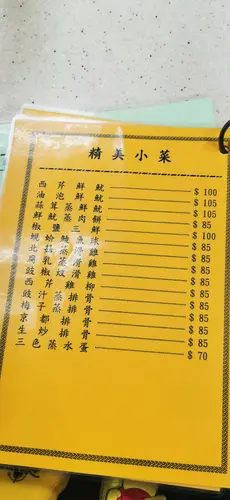 精美小菜
西芹鮮魷 $ 100
油泡鮮魷 $ 105
蒜茸蒸鮮魷 $ 105
鮮魷蒸肉餅 $ 85
椒鹽 $ 100
北菇蒸滑雞 $ 85
腐乳蒸滑雞 $ 85
豉椒炆滑雞 $ 85
西芹雞柳 $ 85
豉汁蒸排骨 $ 85
梅子蒸排骨 $ 85
京都排骨 $ 85
生炒排骨 $ 85
三色蒸水蛋 $ 70